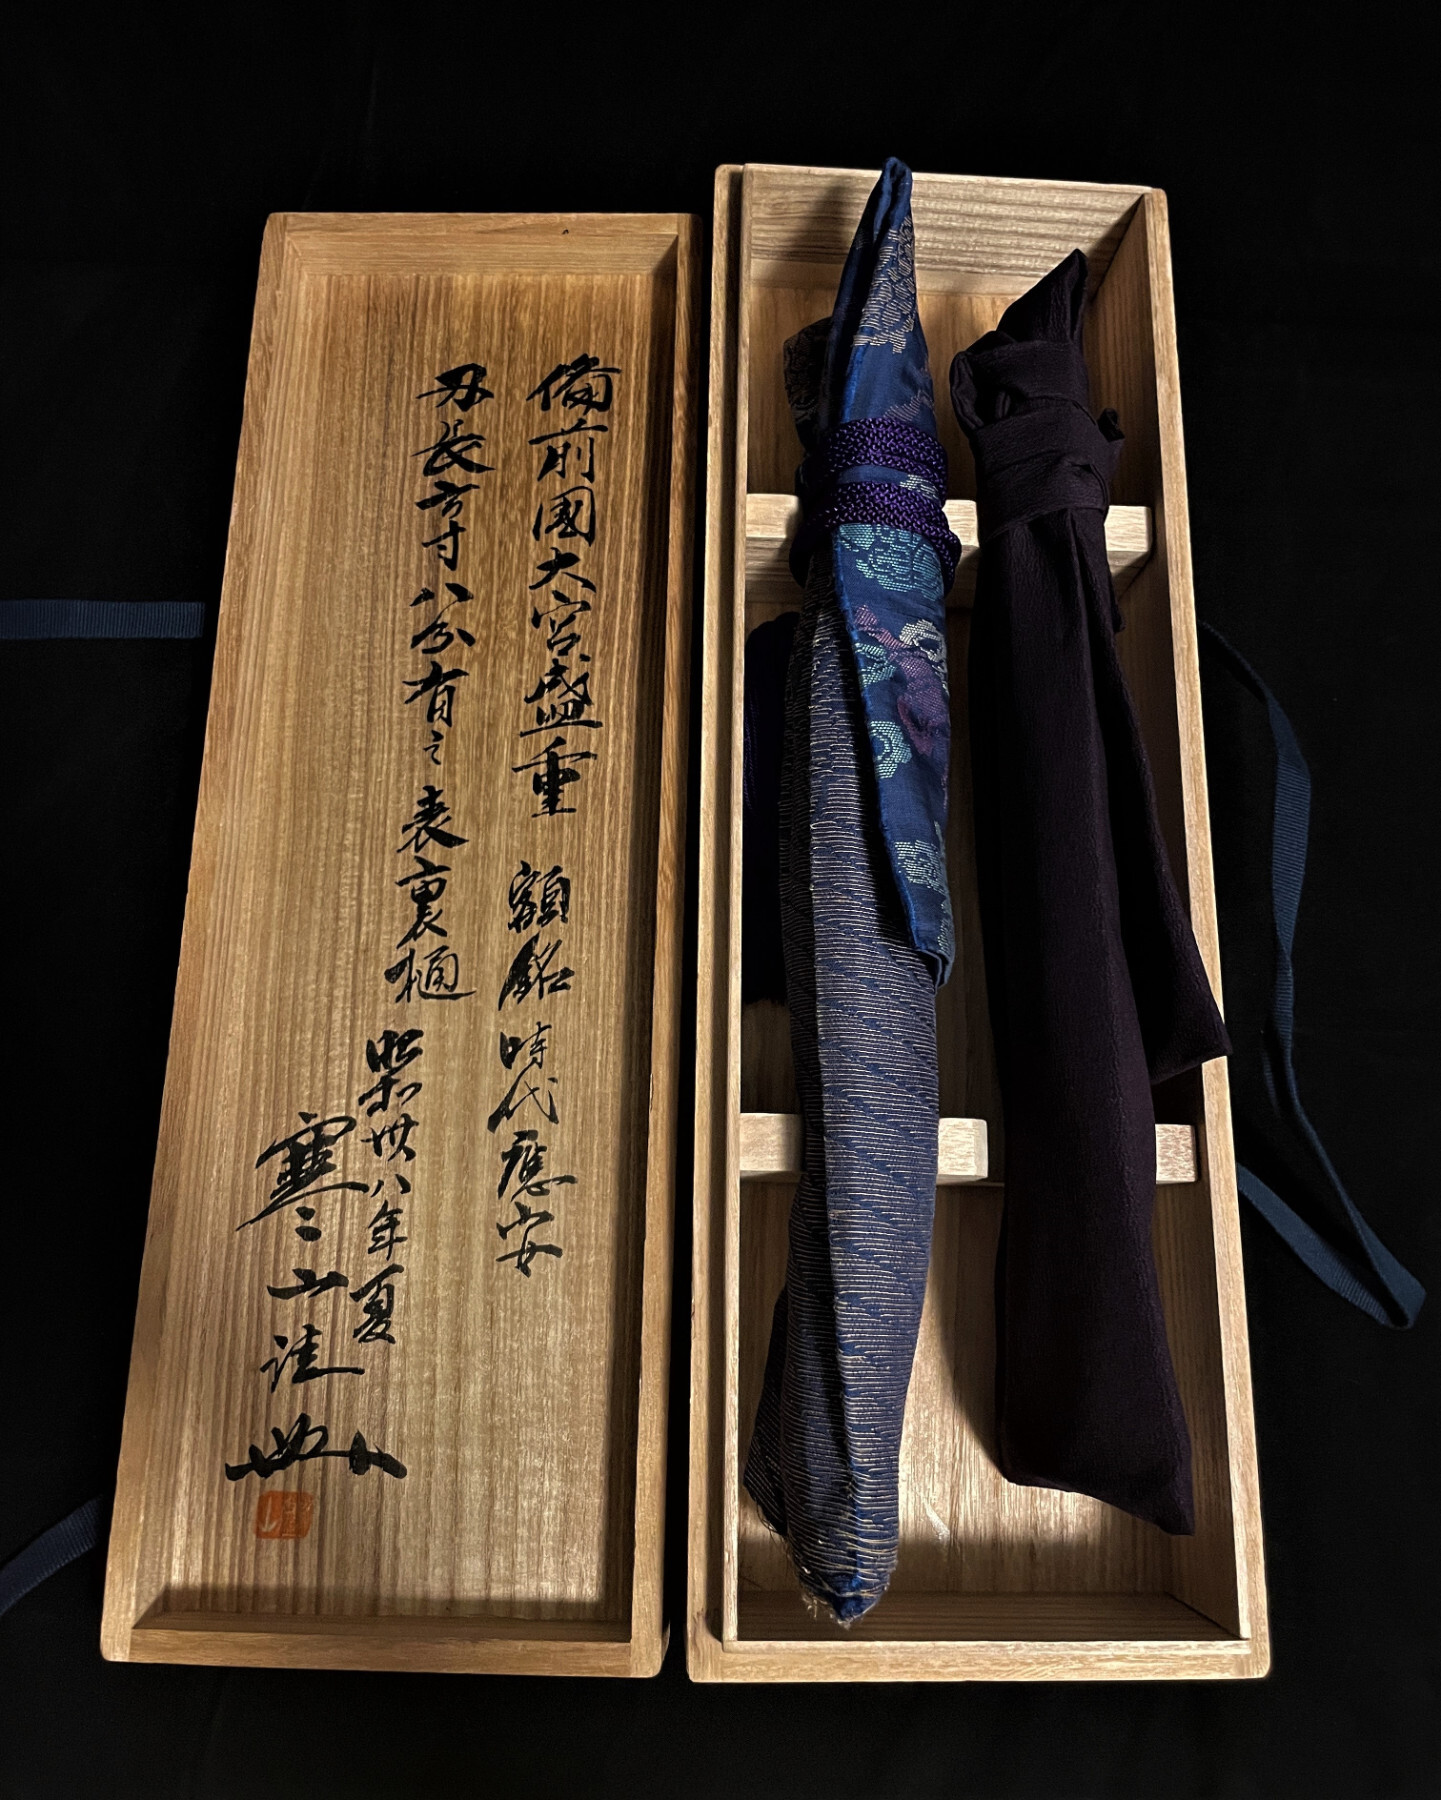 備前國大宮盛重 額銘 時代應安
刃長寸八分有之 表裏樋
昭和卅八年夏
寒山誌